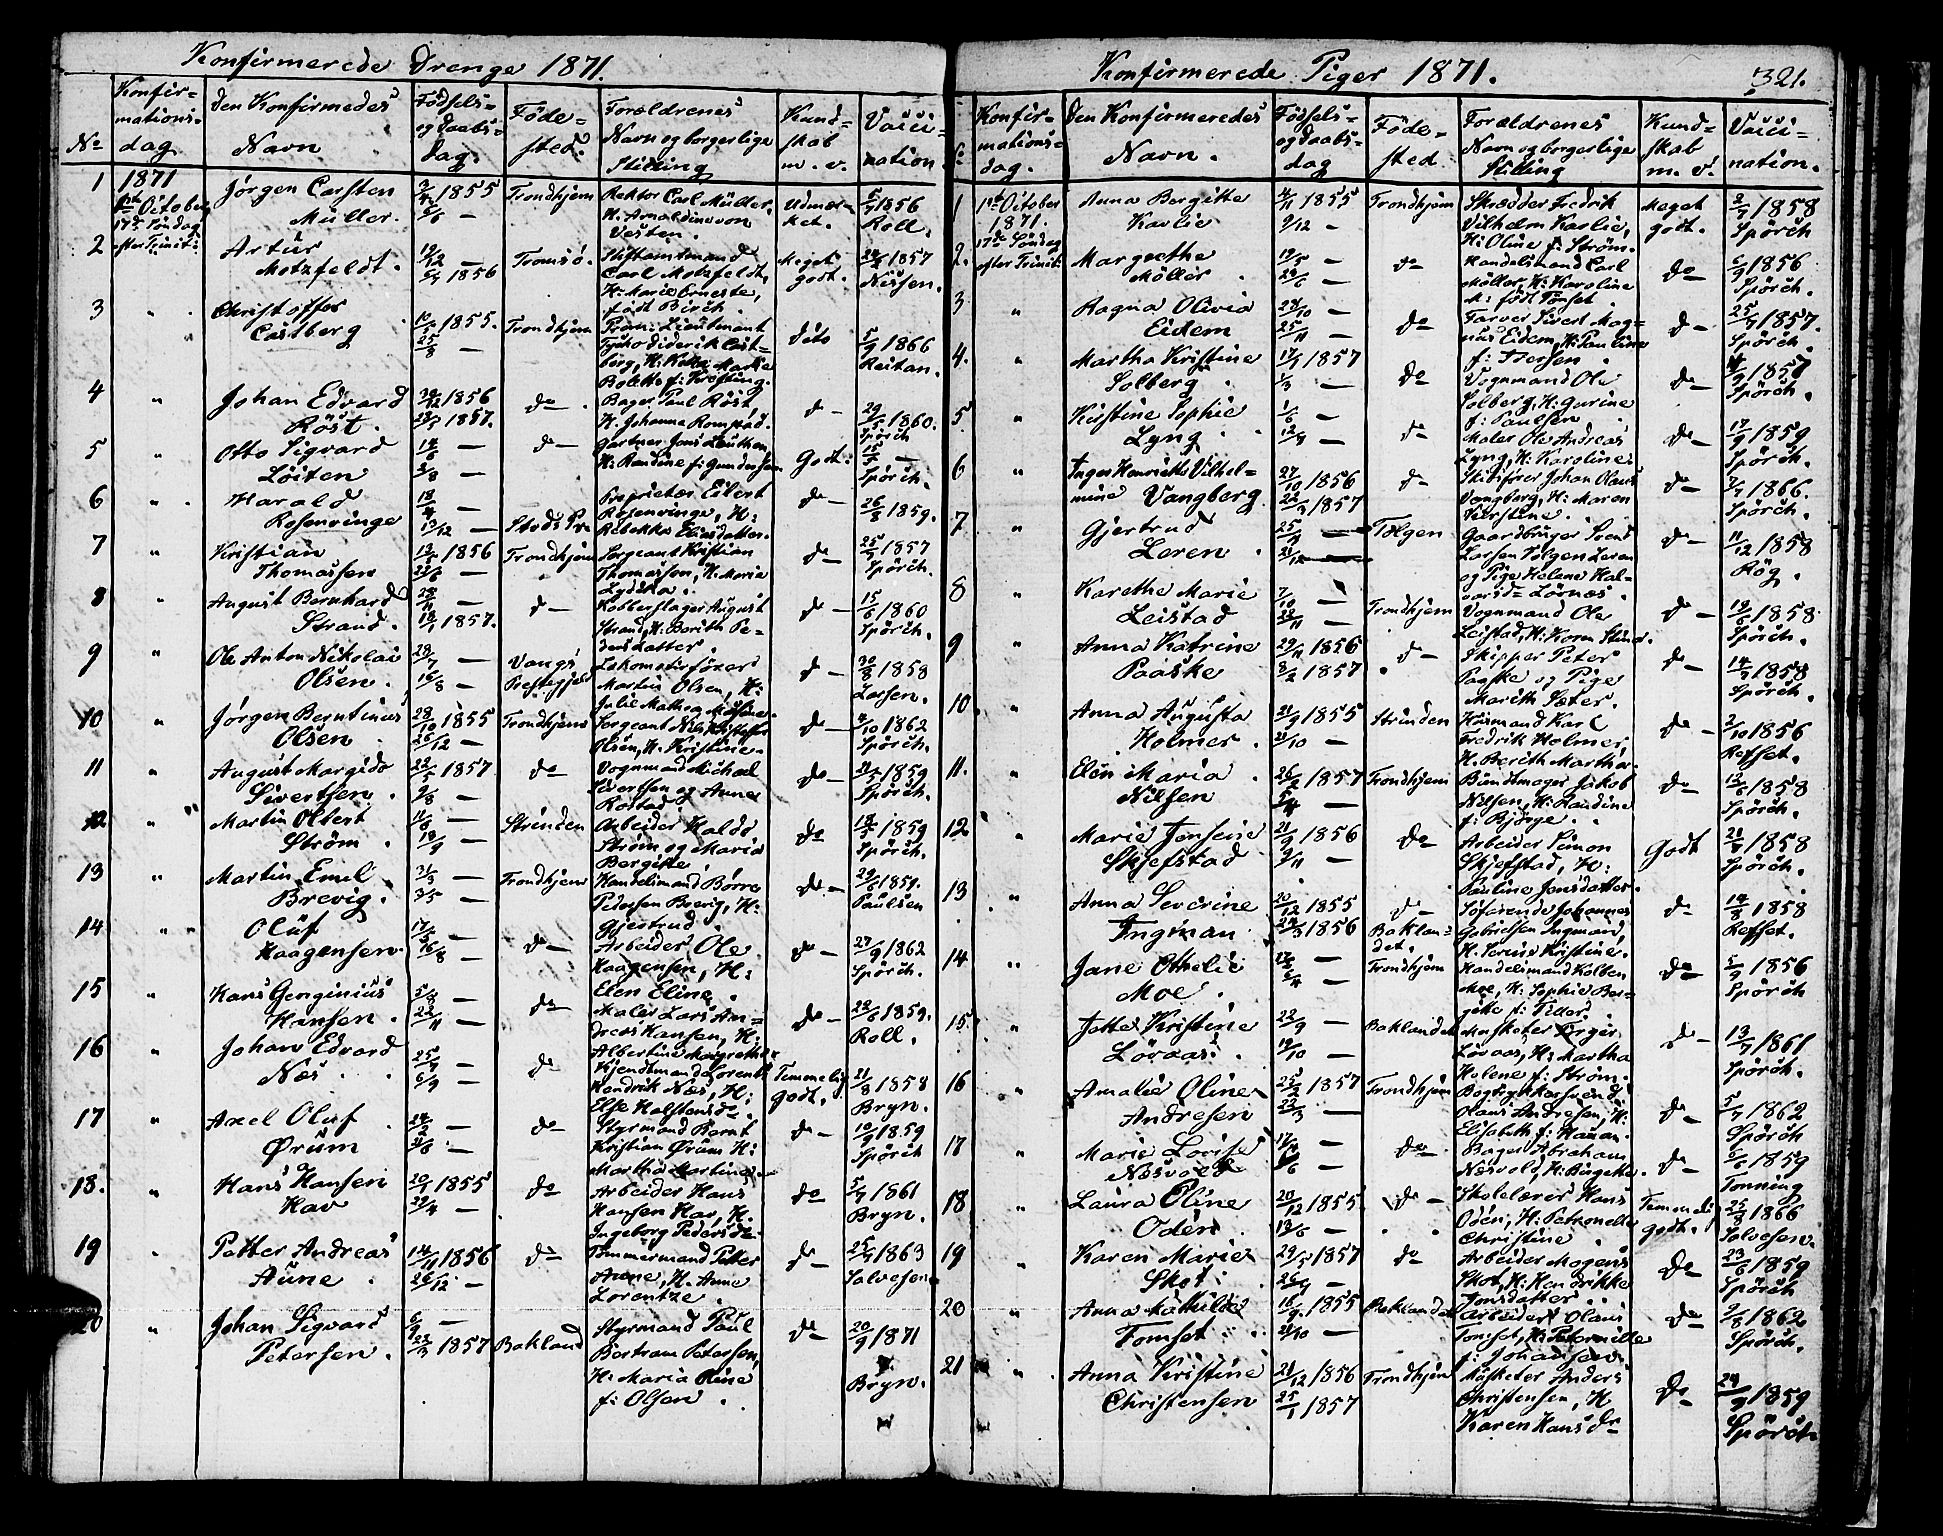 Konfirmerede Drenge 1871.
No
Konfir-
mations-
dag
Den Konfirmedes
Navn
Födsels-
og Daabs-
dag.
Föde-
sted.
Forældrenes
Navn og borgerlige
Stilling
Kund-
skab
m. v.
Vacci-
nation
1 1871
1ste October
17de Söndag
efter Trinit:
Jörgen Carsten
Müller.
1855
Trondhjem
Rektor Carl Müller,
H: Arnoldine von
Westen.
Udmær-
ket.
1856
Roll.
2
Artur
Motzfeldt.
19/12 —
1856
Tromsö.
Stiftamtmand
Carl Motzfeldt,
H: Marie Erneste,
född Birch.
Meget
godt.
1857
Nissen.
3 "
Christoffer
Castberg
1855.
25/8 —
Trondhjem
Prem: Lieutnant
Tycho Diderik Cast-
berg, H:
Bolette f: Kresting.
dito
5/9 1866
Reitan.
4 "
Johan Edvard
Röst.
1856
1857.
do
Bager Paul Röst
H. Johanna Romstad.
do —
29/5 1860.
Spörch
5 "
Otto Sigvard
Löiten
14/6 —
3/8 —
do —
Gartner Jens Leuthen
H: Randine f: Gundersen
Godt.
15/5 —
Spörch.
6 "
Harald
Rosenvinge
18/4 —
13/12 —
Stods Pr
Proprietær Eilert
Rosenvinge, H:
Rebekka Eliasdatter.
do —
26/8 1859.
7 "
Kristian
Thomassen
1856
—
Trondhjem
Sergeant Kristian
Thomassen, H: Maria
Lydska.
do
25/7 1857
Spörch.
8 "
August Bernhard
Strand.
28/11 —
18/1 1857.
do —
Kobberslager August
Strand, H: Berith Pe-
dersdatter.
do —
15/6 1860
Spörch.
9 "
Ole Anton Nikolai
Olsen.
28/7 —
16/8 —
Vangs
Prestegjeld
Lokomotivförer
Martin Olsen, H:
Julie Mathea Mösine.
do —
30/8 1858
Larsen.
10 "
Jörgen Berntinus
Olsen
28/10 1855
26/12 —
Trondhjem
Sergeant Nils Kristoffer
Olsen, H: Kristine.
do —
4/10 1862
Spörch.
11 "
August Margido
Sivertsen.
22/5 1857
9/8 —
do
Vognmand Michael
Sivertsen og Anne
Rostad.
do —
21/5 1859
Spörch.
12 "
Martin Olbert
Ström.
11/6 —
18/9 —
Strinden
Arbeider Haldo
Ström og Maria
Bergitte.
do
1859
Spörch.
13
Martin Emil
Brevig.
21/3 —
3/5 —
Trondhjem
Handelsmand Börre
Pedersen Brevig, H:
Gjertrud.
do —
29/6 1859.
Paulsen
14 "
Oluf
Haagensen
—
16/8 —
do —
Arbeider Ole
Haagensen, H:
Elen Eline.
do —
27/9 1862
Spörch.
15 "
Hans Genginius
Hansen.
5/8 —
22/11 —
do
Maler Lars An-
dreas Hansen, H:
Albertine Margrethe
do —
22/6 1859.
Roll.
16 "
Johan Edvard
Næs.
25/7 —
6/9 —
do
Kjendtmand Lorents
Hendrik Næs, H:
Else Halstensdr.
Temmelig
godt.
21/8 1858
Bryn.
17 "
Axel Oluf
Ørum
24/2 —
—
do
Styrmand Bernt
Kristian Ørum H:
Martha Martine
do —
10/9 1859
Spörch
18. "
Hans Hansen
Hav
1855
29/4 —
do
Arbeider Hans
Hansen Hav, H.
Ingeborg Pedersdr.
do
5/9 1861
Bryn.
19 "
Petter Andreas
Aune
14/11 1856
26/12 —
do
Tömmermand Petter
Aune, H. Anne
Lorentze.
do —
25/7 1863
Salvesen
20 "
Johan Sigvard
Petersen.
6/9 —
22/3 1857
Bakland
Styrmand Paul
Bertram Petersen,
H: Maria Oline
f: Olsen.
do —
20/9 1871
Bryn.
Konfirmerede Piger 1871.
321.
Konfir-
mations-
dag.
Den Konfirmeredes
Navn.
Födsels-
og Daabs-
dag
Föde-
sted
Forældrenes
Navn og borgerlige
Stilling
Kund-
skab
m. v.
Vacci-
nation.
1
1ste October
1871.
17de Söndag
efter Trinit:
Anna Bergitte
Kavlie
4/11 1855
9/12 —
Trondhjem
Skrædder Fredrik
Vilhelm Kavlie,
H: Oline f: Ström.
Meget
godt.
1858
Spörch
2.
Margrethe
Möller
19/5 —
24/6 —
do
Handelsmand Carl
Möller, H: Karoline
M: född Tönset.
do
6/9 1856
Spörch.
3 "
Ragna Olivia
Eidem
28/10 —
25/11 —
do
Farver Sivert Mag-
nus Eidem, H: Pauline
f: Iversen.
do —
25/7 1857.
Spörch.
4. "
Martha Kristine
Solberg.
1857
1/3 —
do
Vognmand Ole
Solberg, H: Gurine
f: Paulsen.
do —
1857
Spörch.
5 "
Kristine Sophie
Lyng.
—
12/8 —
do
Maler Ole Andreas
Lyng, H: Karoline.
do —
17/9 1859
Spörch.
6 "
Inger Henriette Vilhel-
mine Vangberg
27/10 1856
22/3 1857
do
Skibsförer Johan Olaus
Vangberg, H: Maren
Kirstine.
do —
1866.
Spörch.
7 "
Gjertrud
Leren
25/11 —
21/12 —
Tolgen
Gaardbruger Svend
Larsen Tolgen Leren
og Pige Helene Hal-
vorsdr Lörnæs.
do —
11/12 1858
Rög.
8 "
Karethe Marie
Leistad
7/10 —
28/11 —
Trondhjem
Vognmand Ole
Leistad, H: Karen Strind.
do
13/6 1858
Spörch.
9 "
Anna Katrine
Paaske
1856
8/2 1857
do —
Skipper Peter
Paaske og Pige
Marith Sæter.
do —
14/7 1858
Spörch.
10. "
Anna Augusta
Holmer.
21/9 1855
21/10 —
Strinden
Husmand Karl
Fredrik Holmer
H. Berith Martha.
do —
2/10 1856
Refset.
11. "
Elen Maria
Nilsen
26/2 1857
5/4 —
Trondhjem
Bundtmager Jakob
Nilsen, H: Randine
f: Bjerge.
do —
1858
Spörch.
12 "
Marie Jensine
Skjefstad
21/9 1856
2/11 —
do
Arbeider Simon
Skjefstad, H:
Pauline Jonsdatter.
Godt
21/8 1858
Spörch.
13 "
Anna Severine
Ingman
20/12 1855
24/3 1856
do —
Baklan-
det.
Söfarende Johannes
Gabrielsen Ingman,
H. Serine Kristine.
do
14/8 1858
Refset.
14 "
Jane Othelie
Moe.
—
6/4 —
Trondhjem
Handelsmand Kolben
Moe, H: Sophie Ber-
gitte f: Tiller.
do —
5/9 1856
Spörch
15. "
Jette Kristine
Lövaas.
22/9 —
19/10 —
Baklandet
Musketer Birger
Lövaas, H: Martha
Helene f: Ström.
do —
13/7 1861
Spörch.
16 "
Amalie Oline
Andresen
25/2 1857
22/3 —
Trondhjem
Bogtrykkersvend
Olaus Andresen, H:
Elisabeth f: Hauan.
do —
5/7 1862
Spörch
17 "
Marie Lovise
Næsvold
—
—
do
Bager Abraham
Næsvold, H: Birgitte.
do —
6/6 1859
Tonning
18 "
Laura Oline
Odén
20/12 1855
13/6 —
do —
Skolelærer Hans
Odén, H: Petronelle
Christine
Temmelig
godt.
25/8 1866
Salvesen.
19 "
Karen Marie
Skot.
29/5 1857
—
do
Arbeider Mogens
Skot, H: Hendrikke
Jonsdatter
do —
23/6 1859
Spörch
20 "
Anna Mathilde
Tomset
16/9 1855
21/10 —
Baklandet
Arbeider Olaus
Tomset, H: Peternille
f: Johansen.
do —
2/8 1862
Spörch.
21 "
Anna Kristine
Christensen
21/12 1856
25/1 1857
Trondhjem
Musketer Anders
Christensen, H
Karen Hansdr
do
24/9 1859
Spörch